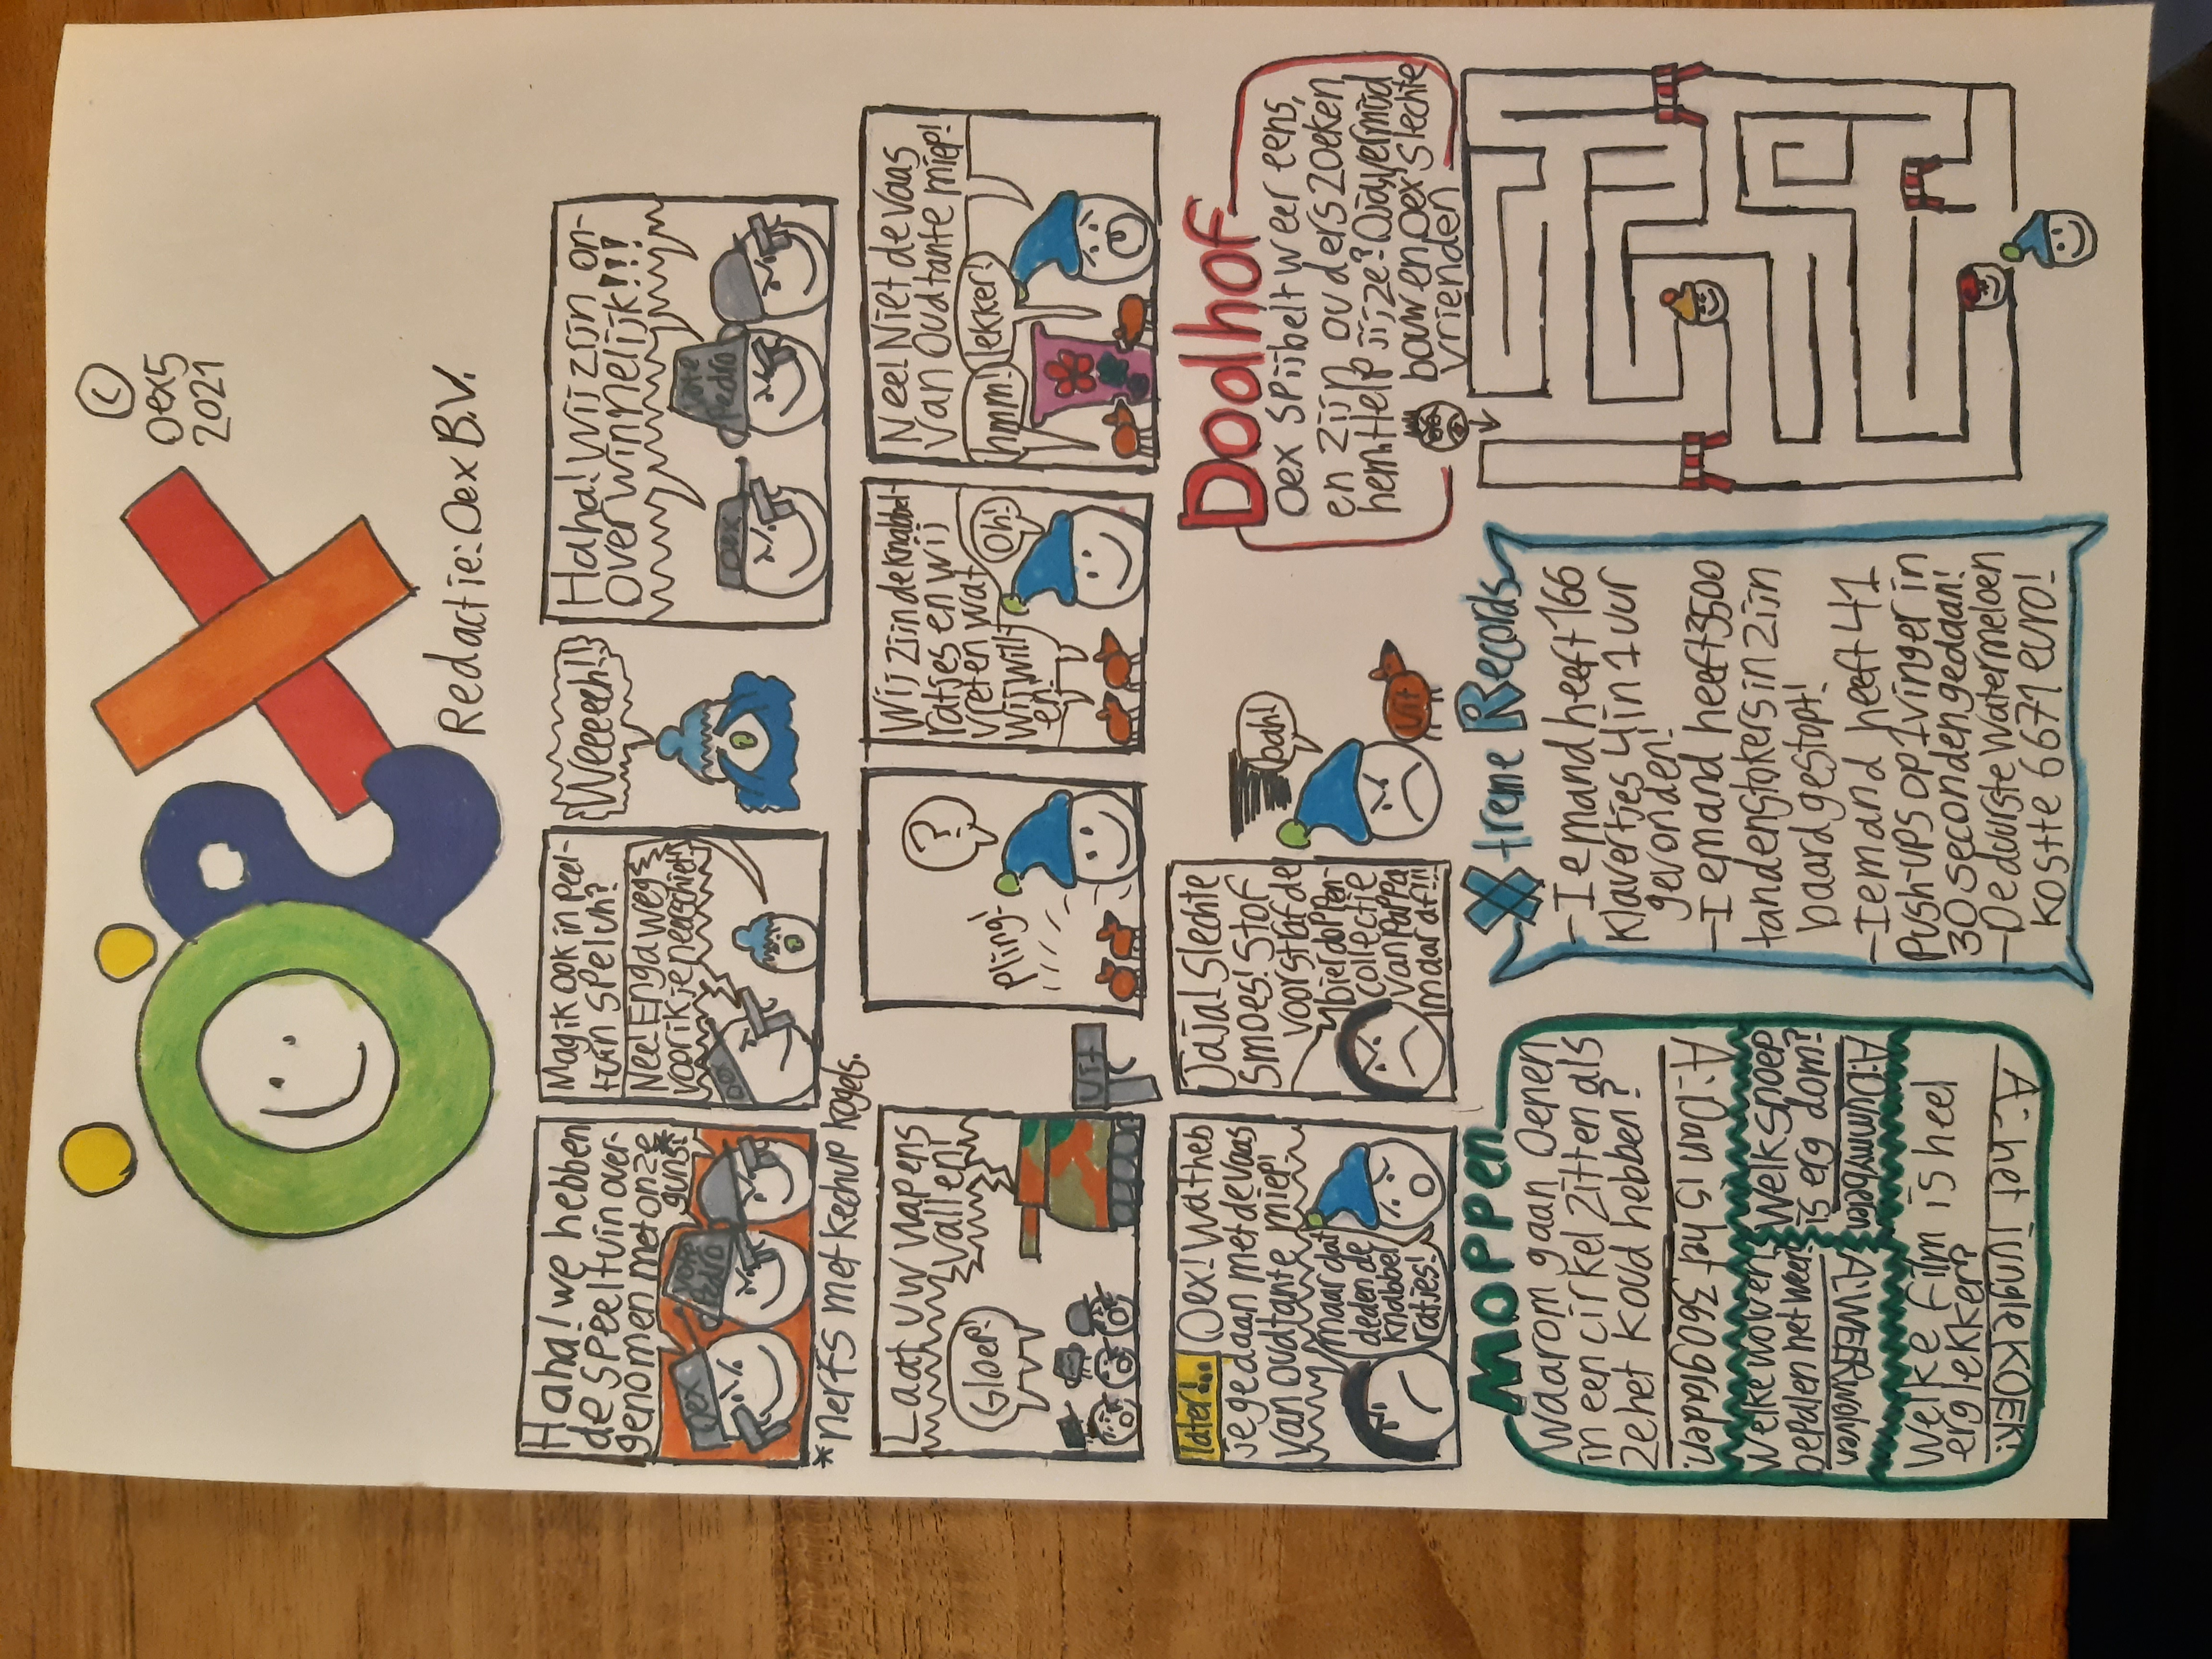 Oex
©
Oex5
2021
Redactie: Oex B.V.
Haha! we hebben
de speeltuin over-
genomen met onze
guns*
Oex
Vote
Pedro
*nerfs met kechup kogels.
Mag ik ook in peel-
tuin speluh?
Nee! En ga weg
voor ik je neerschiet!
Oex
Weeeeeh!!
Haha! Wij zijn on-
overwinnelijk!!!
Oex
Vote
Pedro
Laat uw wapens
vallen!
Gloep!
Uit
?
Pling!
Wij zijn de knabbel-
ratjes en wij
vreten wat
wij will-
en!
Oh!
Nee! Niet de vaas
van oudtante miep!
hmm!
lekker!
later!...
Oex! Wat heb
je gedaan met de vaas
van oudtante miep!
maar dat
deden de
knabbel
ratjes!
Jaja! Slechte
smoes! Stof
voor straf de
bierdoppen-
collectie
van pappa
maar af!!!
bah!
Uit
Doolhof
Oex spijbelt weer eens,
en zijn ouders zoeken
hem. Help jij ze?
bouw en Oex' slechte
vrienden
Moppen
Waarom gaan Oenen
in een cirkel zitten als
ze het koud hebben?
A: Dan is het 360 graden.
Welke wolven
bepalen het weer?
A: WEERwolven
Welk snoep
is erg dom?
A: Dummyberen
Welke film is heel
erg lekker?
A: het jungleKOEK!
Xtreme Records
-Iemand heeft 166
klavertjes 4 in 1 uur
gevonden!
-Iemand heeft 3500
tandenstokers in zijn
baard gestopt!
-Iemand heeft 41
Push-ups op 1 vinger in
30 seconden gedaan!
-De duurste Watermeloen
kostte 6671 euro!